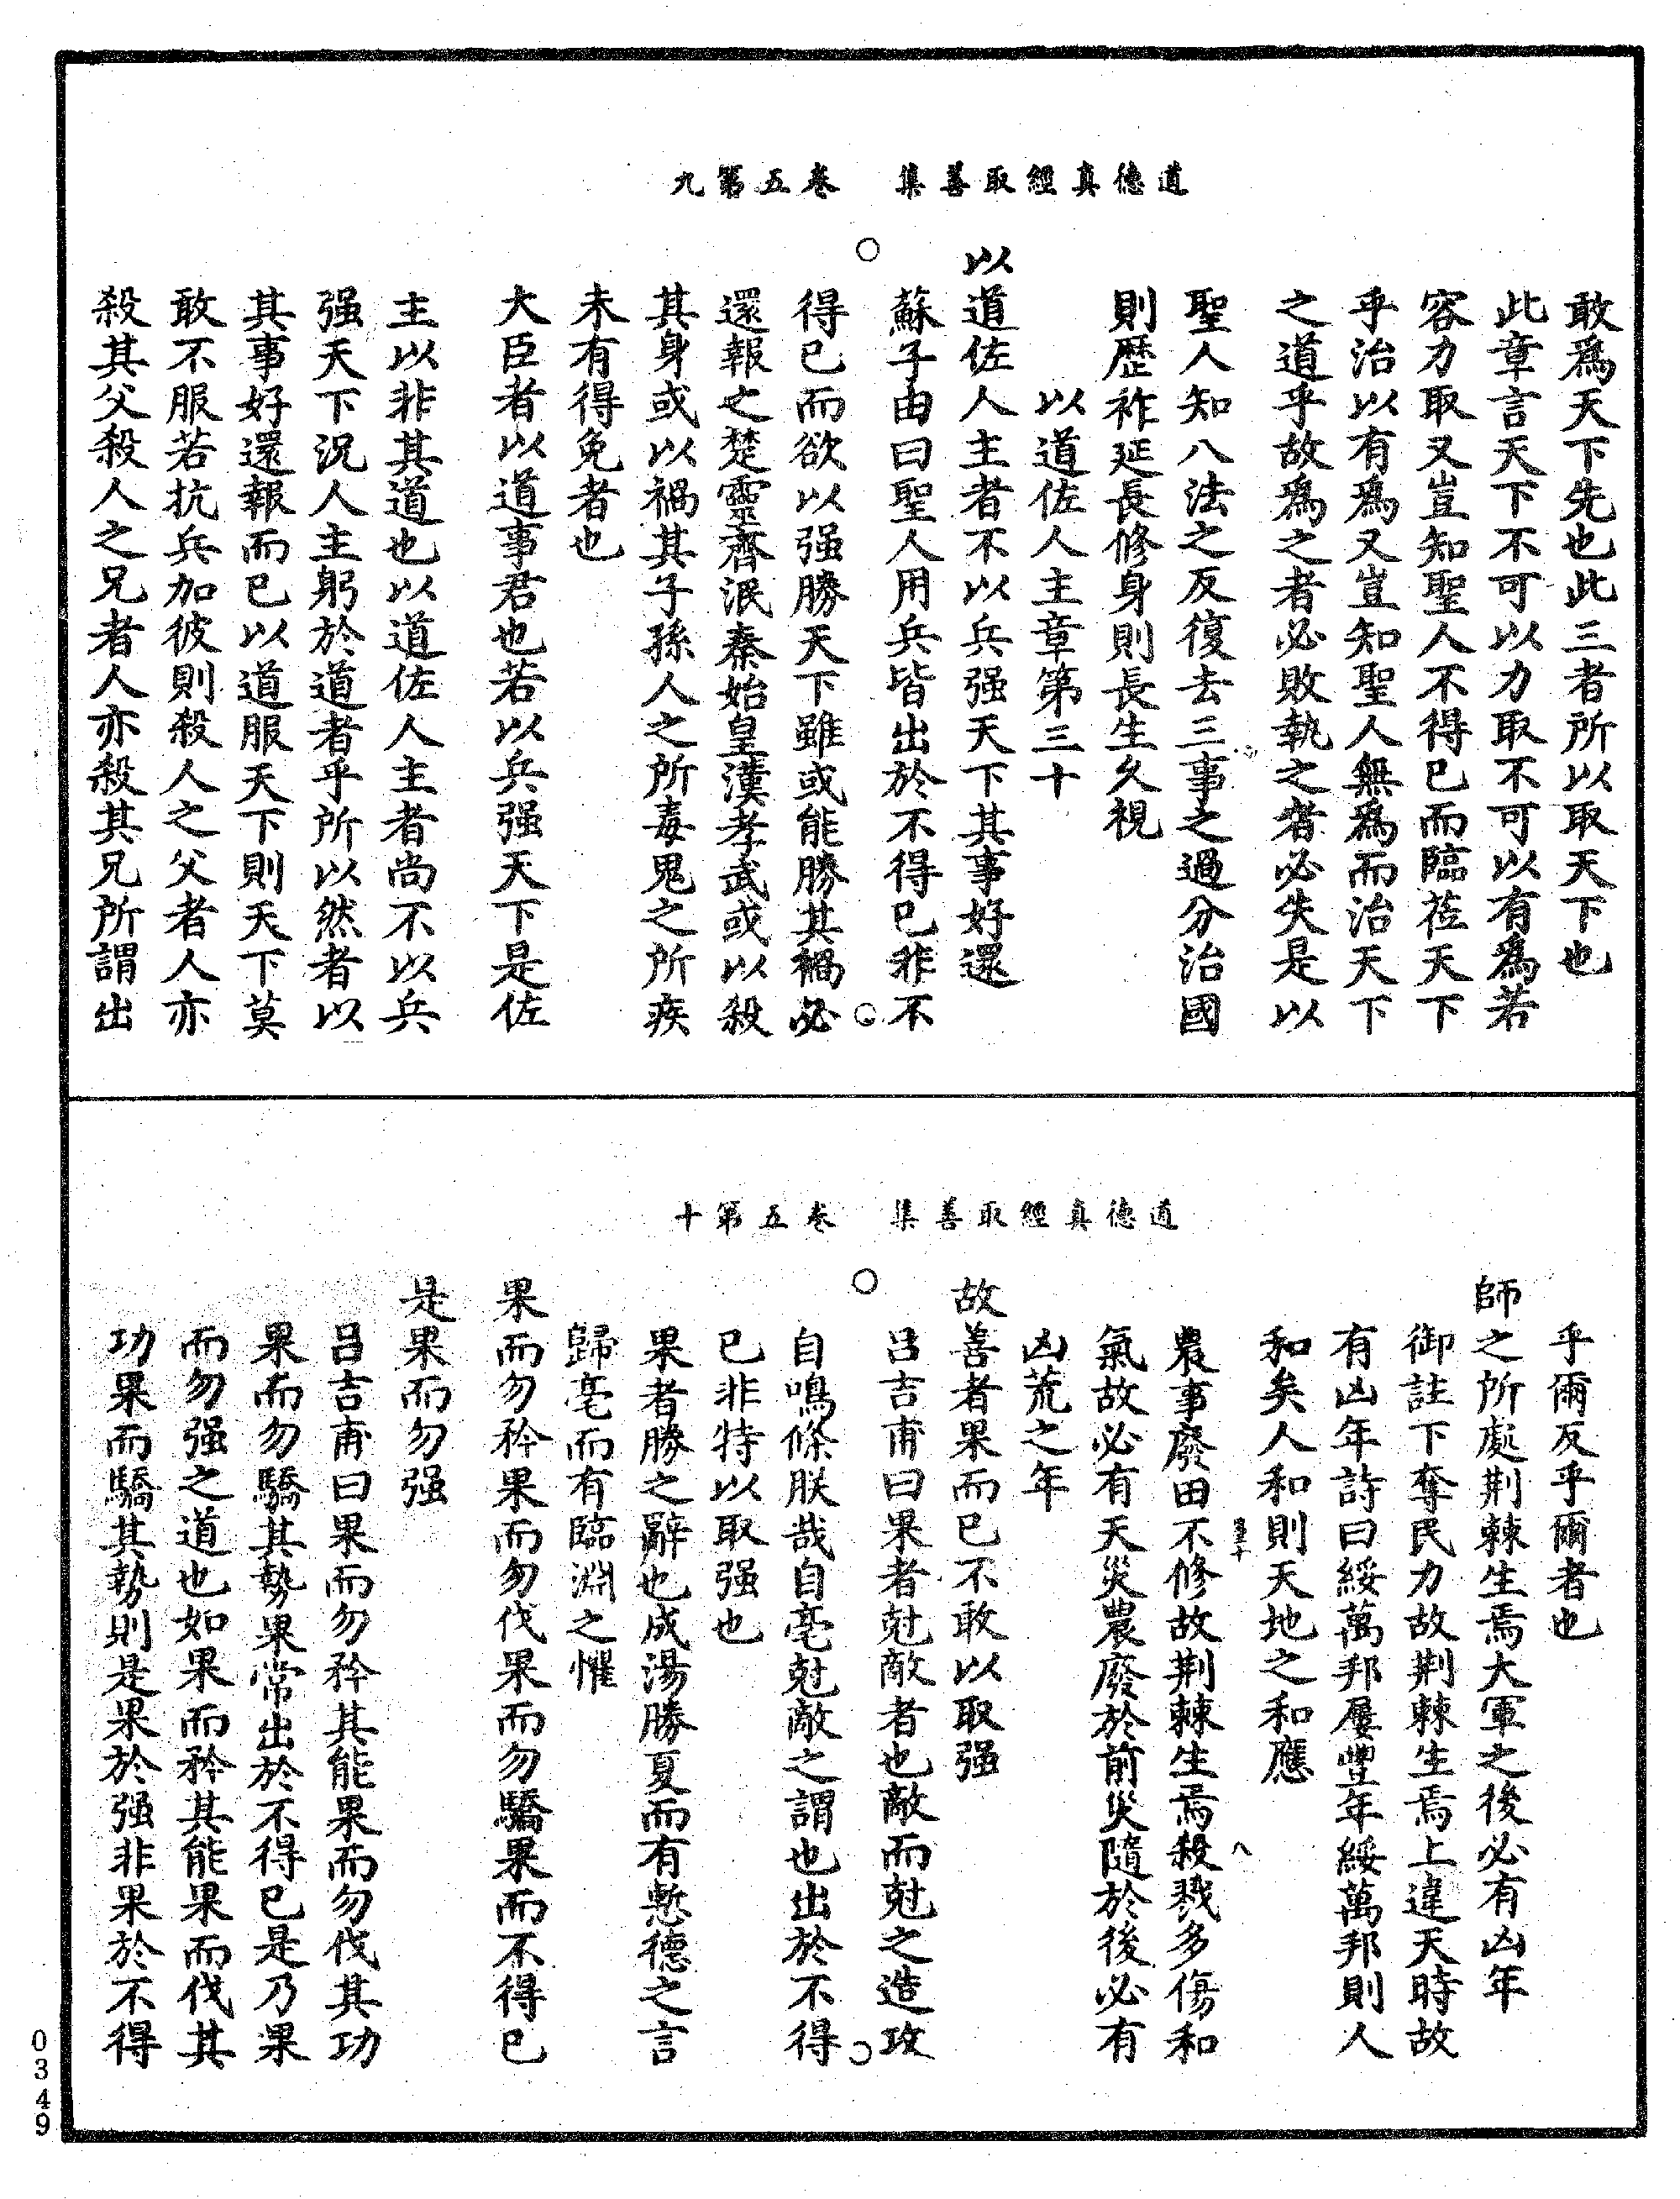 道德真經取善集　卷五第九
敢爲天下先也此三者所以取天下也
此章言天下不可以力取不可以有爲若
容力取又豈知聖人不得已而臨莅天下
乎治以有爲又豈知聖人無爲而治天下
之道乎故爲之者必敗執之者必失是以
聖人知八法之反復去三事之過分治國
則歷祚延長修身則長生久視
以道佐人主章第三十
以道佐人主者不以兵强天下其事好還
蘇子由曰聖人用兵皆出於不得已非不
得已而欲以强勝天下雖或能勝其禍必
還報之楚靈齊泯秦始皇漢孝武或以殺
其身或以禍其子孫人之所毒鬼之所疾
未有得免者也
大臣者以道事君也若以兵强天下是佐
主以非其道也以道佐人主者尚不以兵
强天下況人主躬於道者乎所以然者以
其事好還報而已以道服天下則天下莫
敢不服若抗兵加彼則殺人之父者人亦
殺其父殺人之兄者人亦殺其兄所謂出
道德真經取善集　卷五第十
乎爾反乎爾者也
師之所處荆棘生焉大軍之後必有凶年
御註下奪民力故荆棘生焉上違天時故
有凶年詩曰綏萬邦屢豐年綏萬邦則人
和矣人和則天地之和應
八
農事廢田不修故荆棘生焉殺戮多傷和
氣故必有天災農廢於前災隨於後必有
凶荒之年
故善者果而已不敢以取强
吕吉甫曰果者尅敵者也敵而尅之造攻
自鳴條朕哉自亳尅敵之謂也出於不得
已非特以取强也
果者勝之辭也成湯勝夏而有慙德之言
歸亳而有臨淵之懼
果而勿矜果而勿伐果而勿驕果而不得已
是果而勿强
吕吉甫曰果而勿矜其能果而勿伐其功
果而勿驕其勢果常出於不得已是乃果
而勿强之道也如果而矜其能果而伐其
功果而驕其勢則是果於强非果於不得
0349